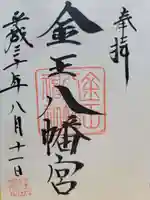 奉拝
金王八幡宮
平成三十年八月十一日